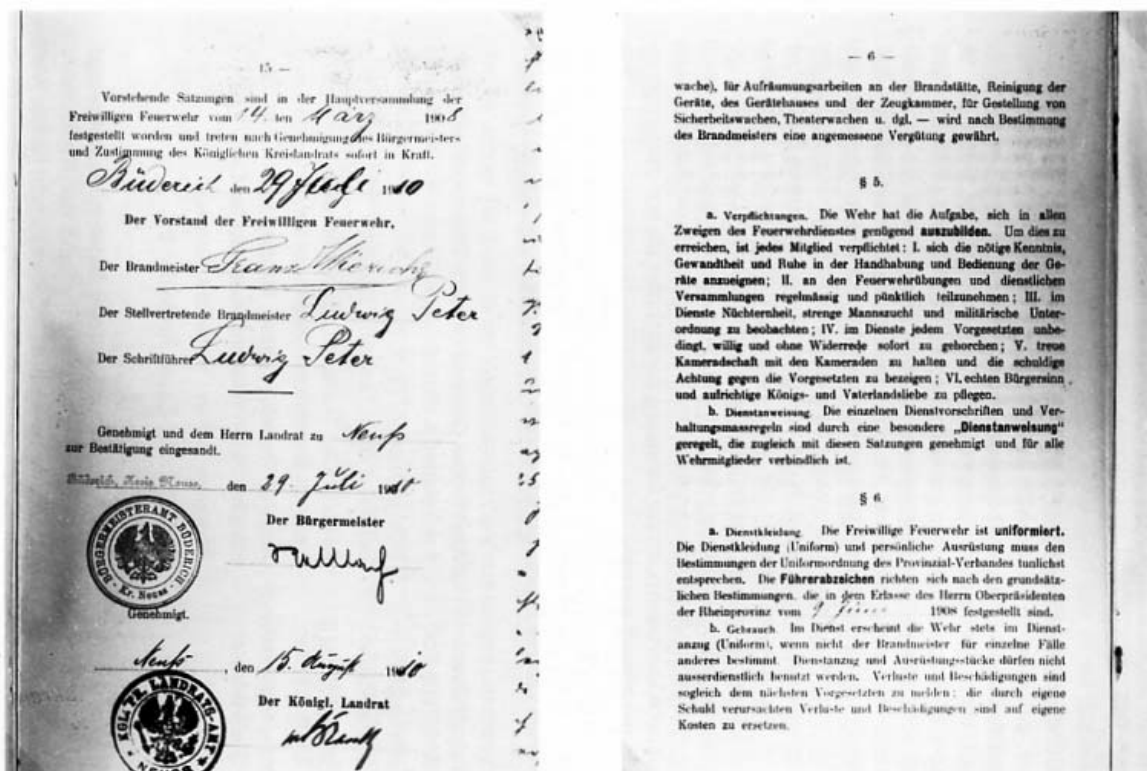 15 —
Vorstehende Satzungen sind in der Hauptversammlung der
Freiwilligen Feuerwehr vom 14. ten März 1908
festgestellt worden und treten nach Genehmigung des Bürgermeisters
und Zustimmung des Königlichen Kreislandrats sofort in Kraft.
Büderich den 29 Juli 1910
Der Vorstand der Freiwilligen Feuerwehr,
Der Brandmeister Franz
Der Stellvertretende Brandmeister Ludwig Peter
Der Schriftführer Ludwig Peter
Genehmigt und dem Herrn Landrat zu Neuß
zur Bestätigung eingesandt.
Büderich, Kreis Neuss, den 29. Juli 1910
Der Bürgermeister
BÜRGERMEISTERAMT BÜDERICH
Kr. Neuss
Genehmigt.
Neuß, den 15. August 1910
Der Königl. Landrat
KGL. PR. LANDRATS-AMT
NEUSS
— 6 —
wache), für Aufräumungsarbeiten an der Brandstätte, Reinigung der
Geräte, des Gerätehauses und der Zeugkammer, für Gestellung von
Sicherheitswachen, Theaterwachen u. dgl. — wird nach Bestimmung
des Brandmeisters eine angemessene Vergütung gewährt.
§ 5.
a. Verpflichtungen. Die Wehr hat die Aufgabe, sich in allen
Zweigen des Feuerwehrdienstes genügend auszubilden. Um dies zu
erreichen, ist jedes Mitglied verpflichtet: I. sich die nötige Kenntnis,
Gewandtheit und Ruhe in der Handhabung und Bedienung der Ge-
räte anzueignen; II. an den Feuerwehrübungen und dienstlichen
Versammlungen regelmässig und pünktlich teilzunehmen; III. im
Dienste Nüchternheit, strenge Mannszucht und militärische Unter-
ordnung zu beobachten; IV. im Dienste jedem Vorgesetzten unbe-
dingt, willig und ohne Widerrede sofort zu gehorchen; V. treue
Kameradschaft mit den Kameraden zu halten und die schuldige
Achtung gegen die Vorgesetzten zu bezeigen; VI. echten Bürgersinn
und aufrichtige Königs- und Vaterlandsliebe zu pflegen.
b. Dienstanweisung. Die einzelnen Dienstvorschriften und Ver-
haltungsmassregeln sind durch eine besondere „Dienstanweisung"
geregelt, die zugleich mit diesen Satzungen genehmigt und für alle
Wehrmitglieder verbindlich ist.
§ 6.
a. Dienstkleidung. Die Freiwillige Feuerwehr ist uniformiert.
Die Dienstkleidung (Uniform) und persönliche Ausrüstung muss den
Bestimmungen der Uniformordnung des Provinzial-Verbandes tunlichst
entsprechen. Die Führerabzeichen richten sich nach den grundsätz-
lichen Bestimmungen, die in dem Erlasse des Herrn Oberpräsidenten
der Rheinprovinz vom 9 Juni 1908 festgestellt sind.
b. Gebrauch. Im Dienst erscheint die Wehr stets im Dienst-
anzug (Uniform), wenn nicht der Brandmeister für einzelne Fälle
anderes bestimmt. Dienstanzug und Ausrüstungsstücke dürfen nicht
ausserdienstlich benutzt werden. Verluste und Beschädigungen sind
sogleich dem nächsten Vorgesetzten zu melden; die durch eigene
Schuld verursachten Verluste und Beschädigungen sind auf eigene
Kosten zu ersetzen.